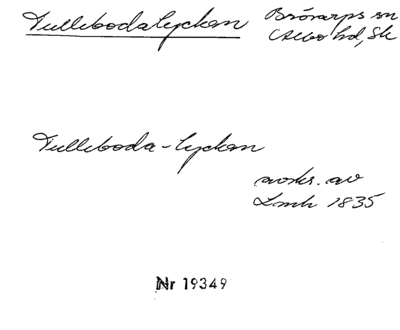 Tulleboda lyckan
Brösarps sn
Albo hd, Sk
Tulleboda-lyckan
avskr. av
Lmh 1835
Nr 19349